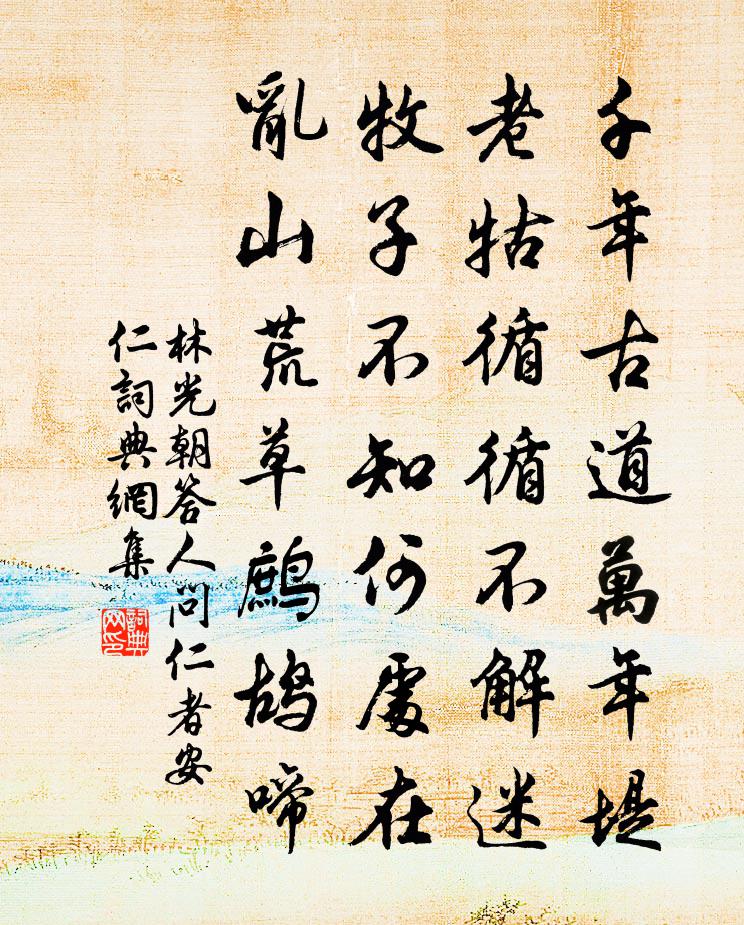 千年古道萬年堤
老牯循循不解迷
牧子不知何處在
亂山荒草鷓鴣啼
林光朝答人問仁者安
仁詞典網集
詞典
网印